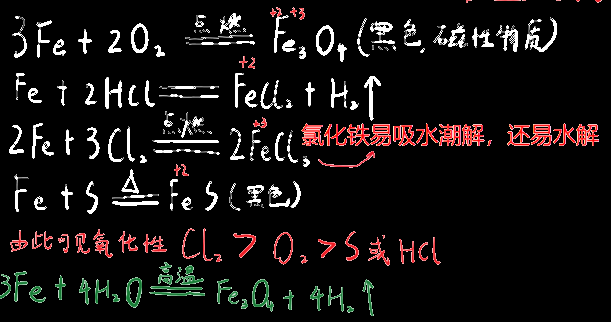 3Fe + 2O₂ 点燃 Fe₃O₄ (黑色,磁性物质) +2 +3
Fe + 2HCl == FeCl₂ + H₂↑ +2
2Fe + 3Cl₂ 点燃 2FeCl₃ +3 氯化铁易吸水潮解,还易水解
Fe + S △ FeS (黑色) +2
由此可见氧化性 Cl₂ > O₂ > S 或 HCl
3Fe + 4H₂O 高温 Fe₃O₄ + 4H₂↑